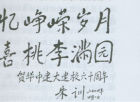 忆峥嵘岁月
喜桃李满园
贺华中建大建校六十周年
朱训